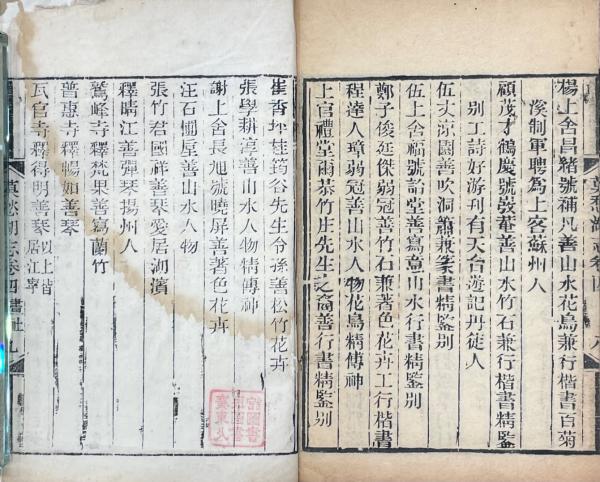 楊上舍昌緒號補凡善山水花鳥兼行楷書百菊
溪制軍聘為上客蘇州人
顧茂才鶴慶號弢菴善山水竹石兼行楷書精鑑
別工詩好游刊有天台遊記丹徒人
伍丈涼圃善吹洞簫兼篆書精鑑別
伍上舍福號詒堂善寫意山水行書精鑑別
鄭子俊廷傑弱冠善竹石兼著色花卉工行楷書
程達人璋弱冠善山水人物花鳥精傳神
上官禮堂爾芬竹庄先生之裔善行書精鑑別
莫愁湖志卷四
崔香坪桂筠谷先生令孫善松竹花卉
張學耕淳善山水人物精傳神
謝上舍長旭號曉屏善著色花卉
汪石樵屋善山水人物
張竹君國祥善琴愛居湖濱
釋晴江善彈琴揚州人
鷲峰寺釋梵果善寫蘭竹
普惠寺釋暢如善琴
瓦官寺釋得明善琴以上皆居江寧
莫愁湖志卷四 畫社 九